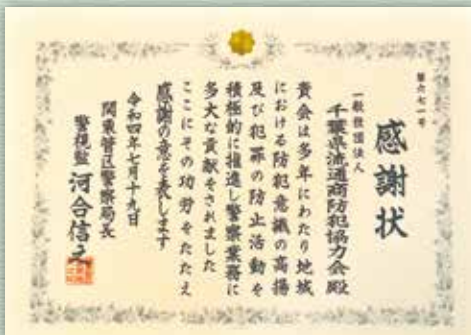 第六七一号
感謝状
一般社団法人
千葉県流通商防犯協力会殿
貴会は多年にわたり地域
における防犯意識の高揚
及び犯罪の防止活動を
積極的に推進し警察業務に
多大な貢献をされました
ここにその功労をたたえ
感謝の意を表します
令和四年七月十九日
関東管区警察局長
警視監 河合信之